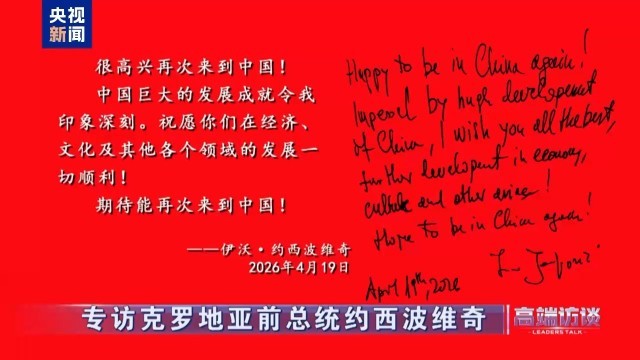 央视
新闻
很高兴再次来到中国！
中国巨大的发展成就令我
印象深刻。祝愿你们在经济、
文化及其他各个领域的发展一
切顺利！
期待能再次来到中国！
——伊沃·约西波维奇
2026年4月19日
Happy to be in China again!
by hugh development
of China, I wish you all the best,
further development in economy,
culture and other
Hope to be in China again!
April 19th, 2026
专访克罗地亚前总统约西波维奇
高端访谈
LEADERS TALK